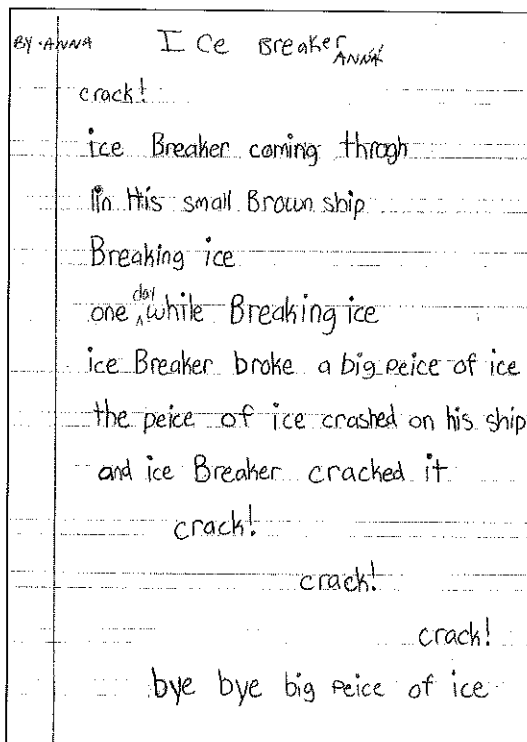 BY·ANNA I Ce Breaker ANNA
crack!
ice Breaker coming throgh
In His small Brown ship
Breaking ice
one day while Breaking ice
ice Breaker broke a big peice of ice
the peice of ice crashed on his ship
and ice Breaker cracked it
crack!
crack!
crack!
bye bye big peice of ice